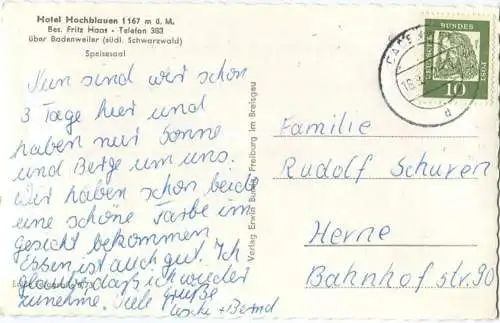 Hotel Hochblauen 1167 m ü. M.
Bes. Fritz Haas · Telefon 383
über Badenweiler (südl. Schwarzwald)
Speisesaal
Nun sind wir schon
3 Tage hier und
haben nur Sonne
und Berge um uns.
Wir haben schon beide
eine schöne Farbe im
Gesicht bekommen
Essen ist auch gut. Ich
glaube daß ich wieder
zunehme. Viele Grüße
+ Bernd
Verlag Erwin Freiburg im Breisgau
DEUTSCHE BUNDESPOST
10
Familie
Rudolf Schuren
Herne
Bahnhofstr. 90